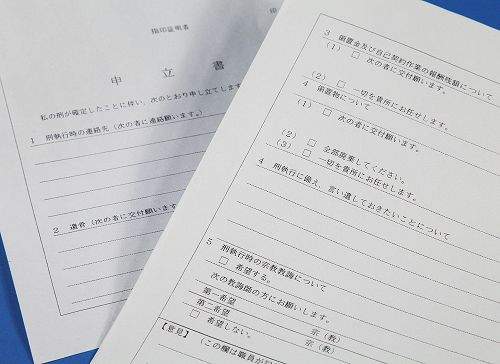 指印証明者
申立書
私の刑が確定したことに伴い、次のとおり申し立てします
1 刑執行時の連絡先(次の者に連絡願います。)
2 遺骨(次の者に交付願います
3 領置金及び自己契約作業の報酬残額について
(1) □ 次の者に交付願います。
(2) □ 一切を貴所にお任せします。
4 領置物について
(1) □ 次の者に交付願います。
(2) □ 全部廃棄してください。
(3) □ 一切を貴所にお任せします。
4 刑執行に備え、言い遺しておきたいことについて
5 刑執行時の宗教教誨について
□ 希望する。
次の教誨師の方にお願いします。
第一希望 宗(教)
第二希望 宗(教)
□ 希望しない。
【意見】
(この欄は職員が